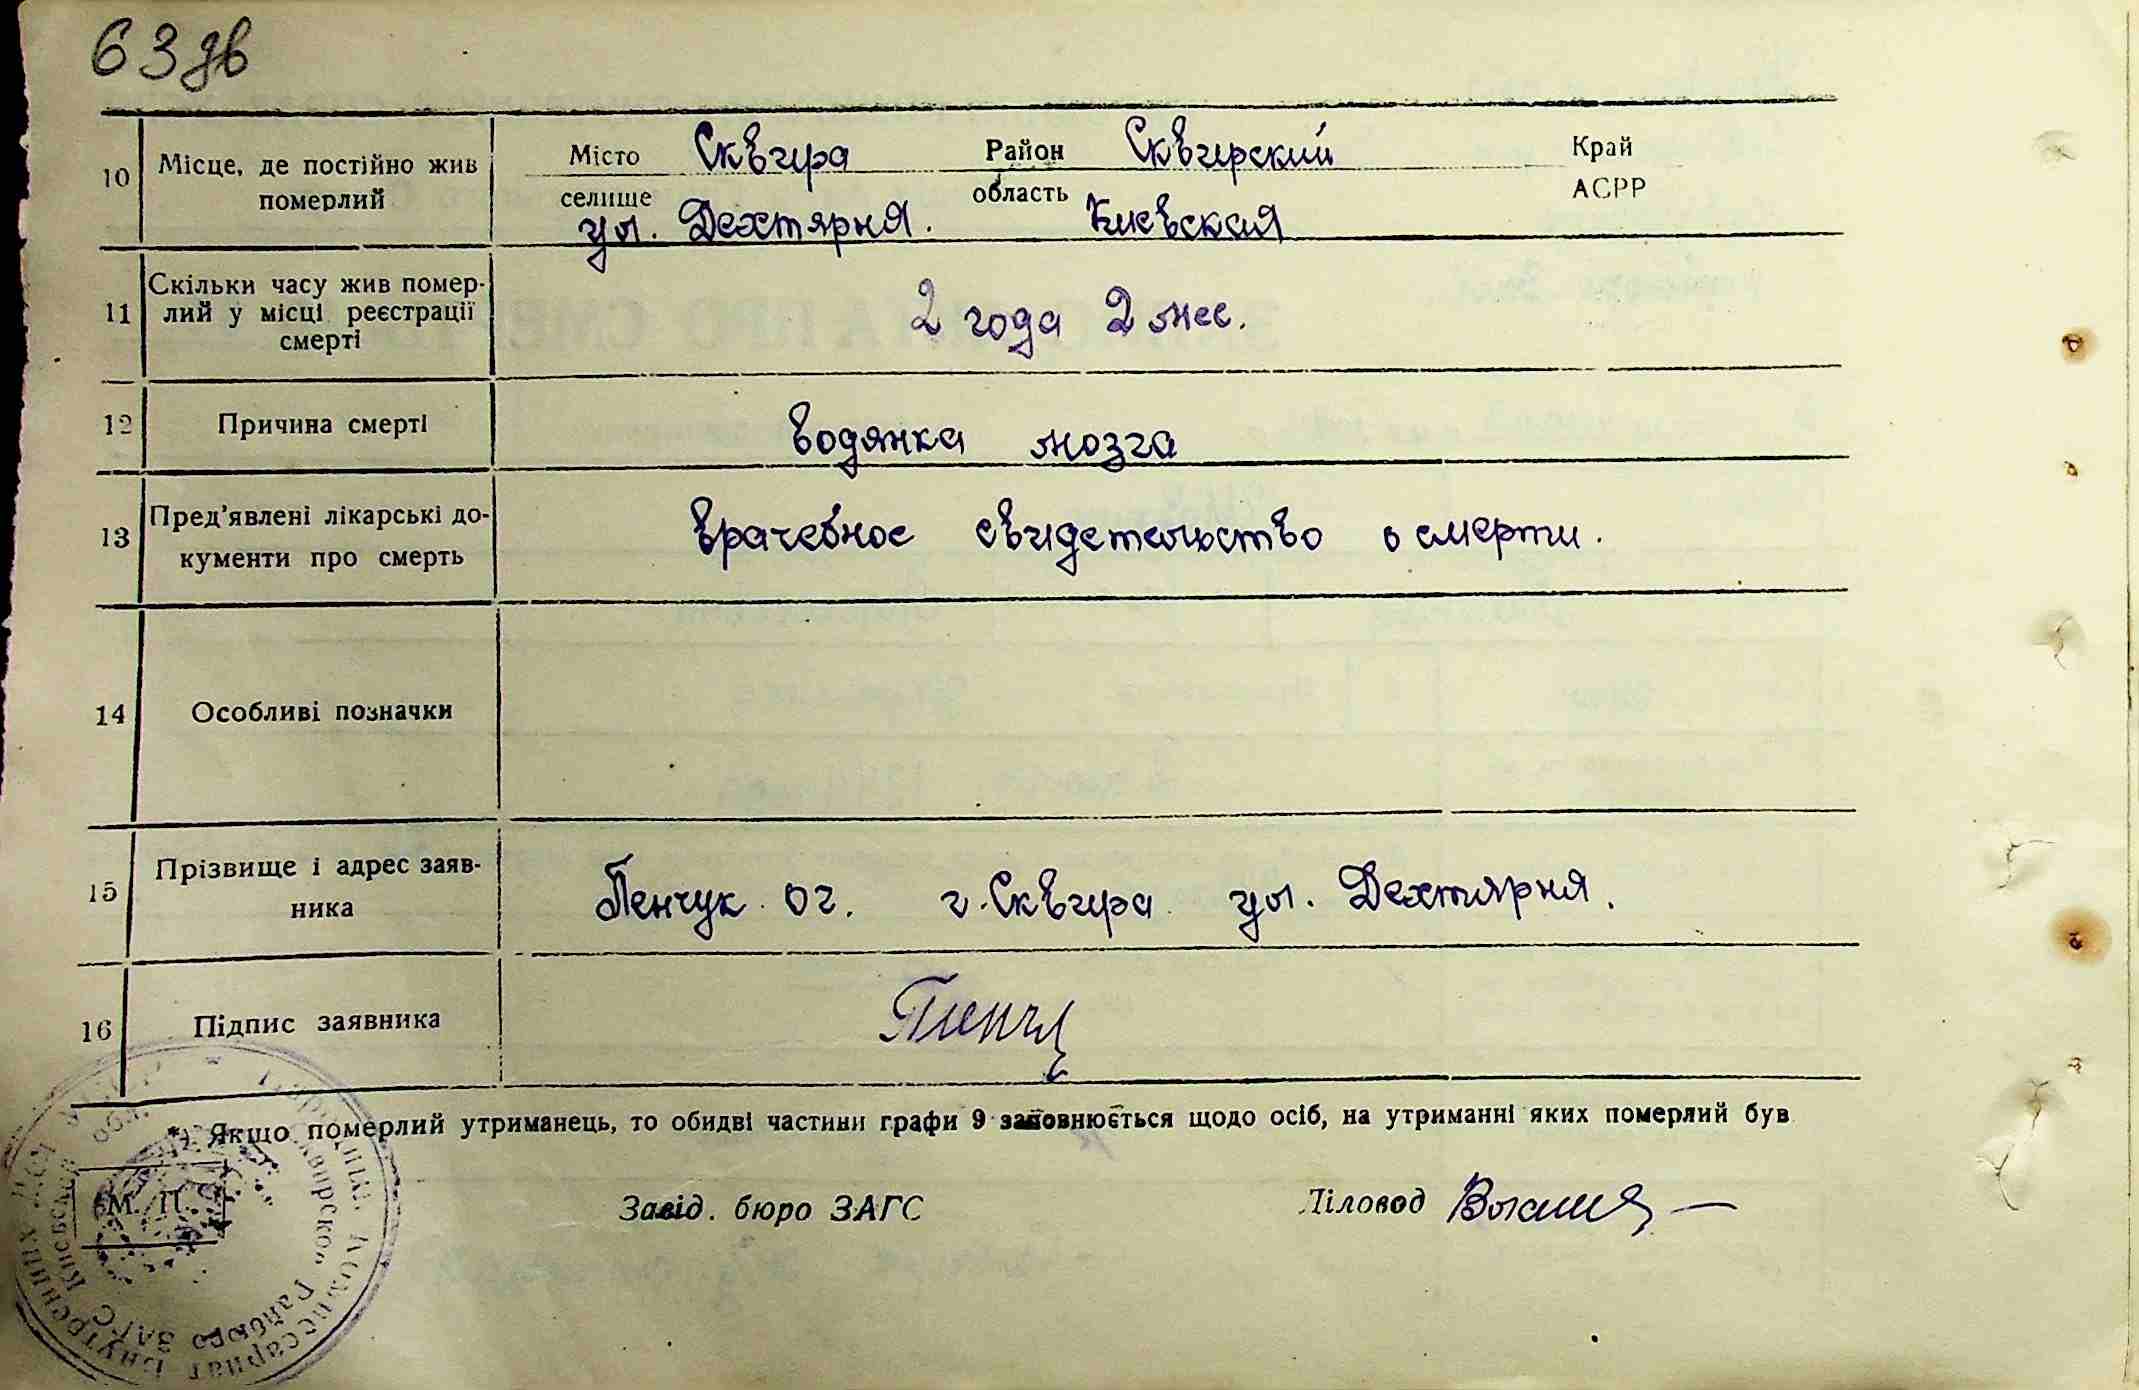 63 зв
10 Місце, де постійно жив померлий
Місто Сквира Район Сквирский Край
селище область АСРР
ул. Дехтярня. Киевская
11 Скільки часу жив помер-
лий у місці реєстрації
смерті
2 года 2 мес.
12 Причина смерті
водянка мозга
13 Пред'явлені лікарські до-
кументи про смерть
врачебное свидетельство о смерти.
14 Особливі позначки
15 Прізвище і адрес заяв-
ника
Пенчук г. Сквира ул. Дехтярня.
16 Підпис заявника
*) Якщо померлий утриманець, то обидві частини графи 9 заповнюється щодо осіб, на утриманні яких померлий був
М. П.
Завід. бюро ЗАГС
Діловод